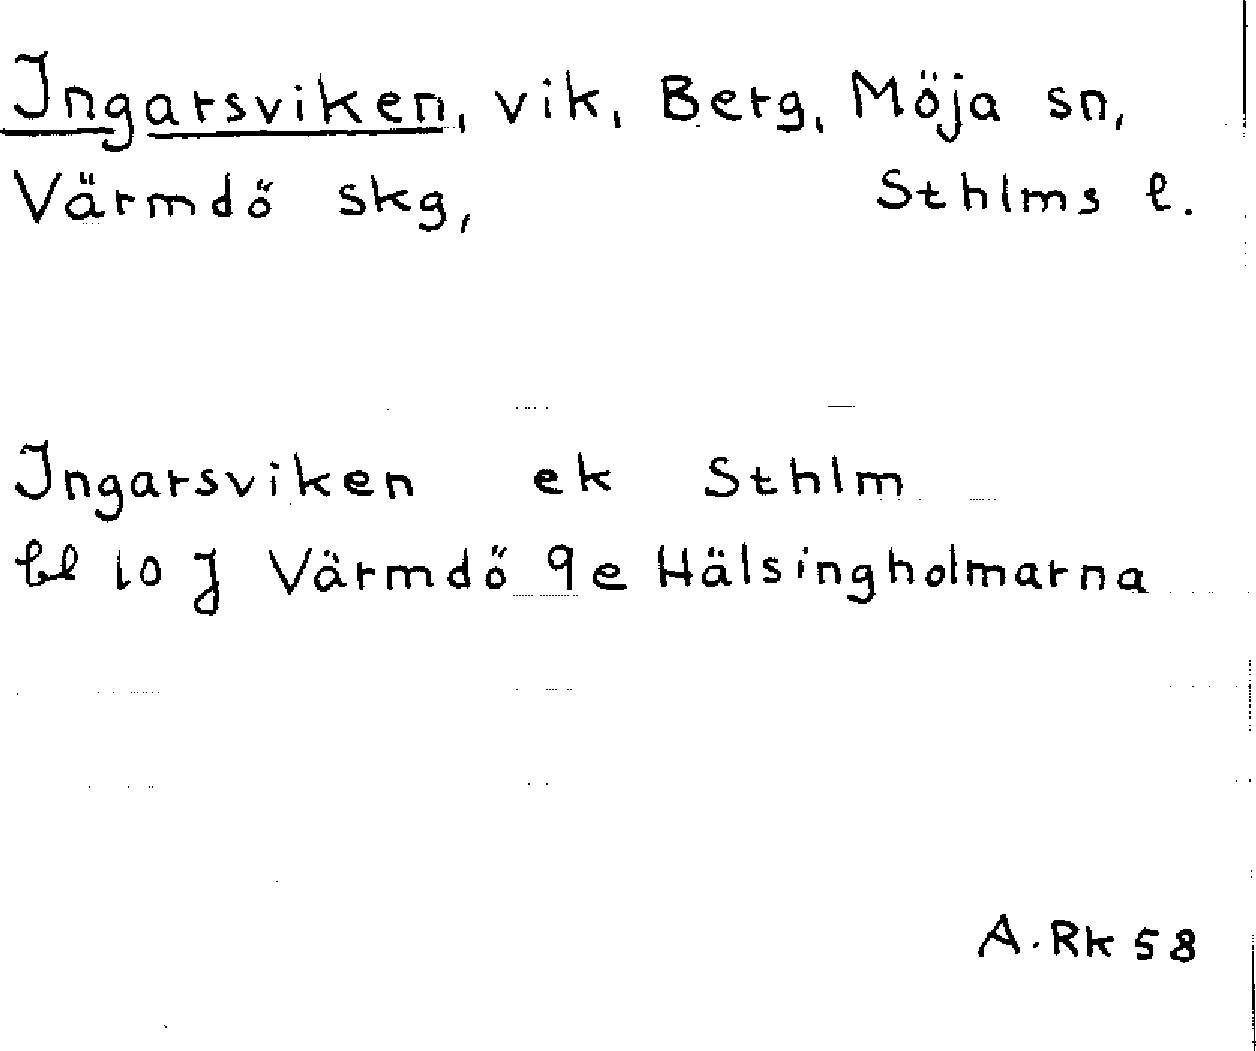 Ingarsviken, vik, Berg, Möja sn,
Värmdö skg, Sthlms l.
Ingarsviken ek Sthlm
bl 10 J Värmdö 9e Hälsingholmarna
A. Rk 58